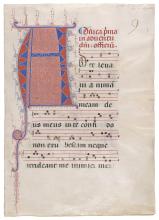 Dñica pma
in aduentu
dñi. officiũ.
A
te leua
ui anima
meam de
us meus in te confi do
non eru bescam neque
irrideant me inimici me